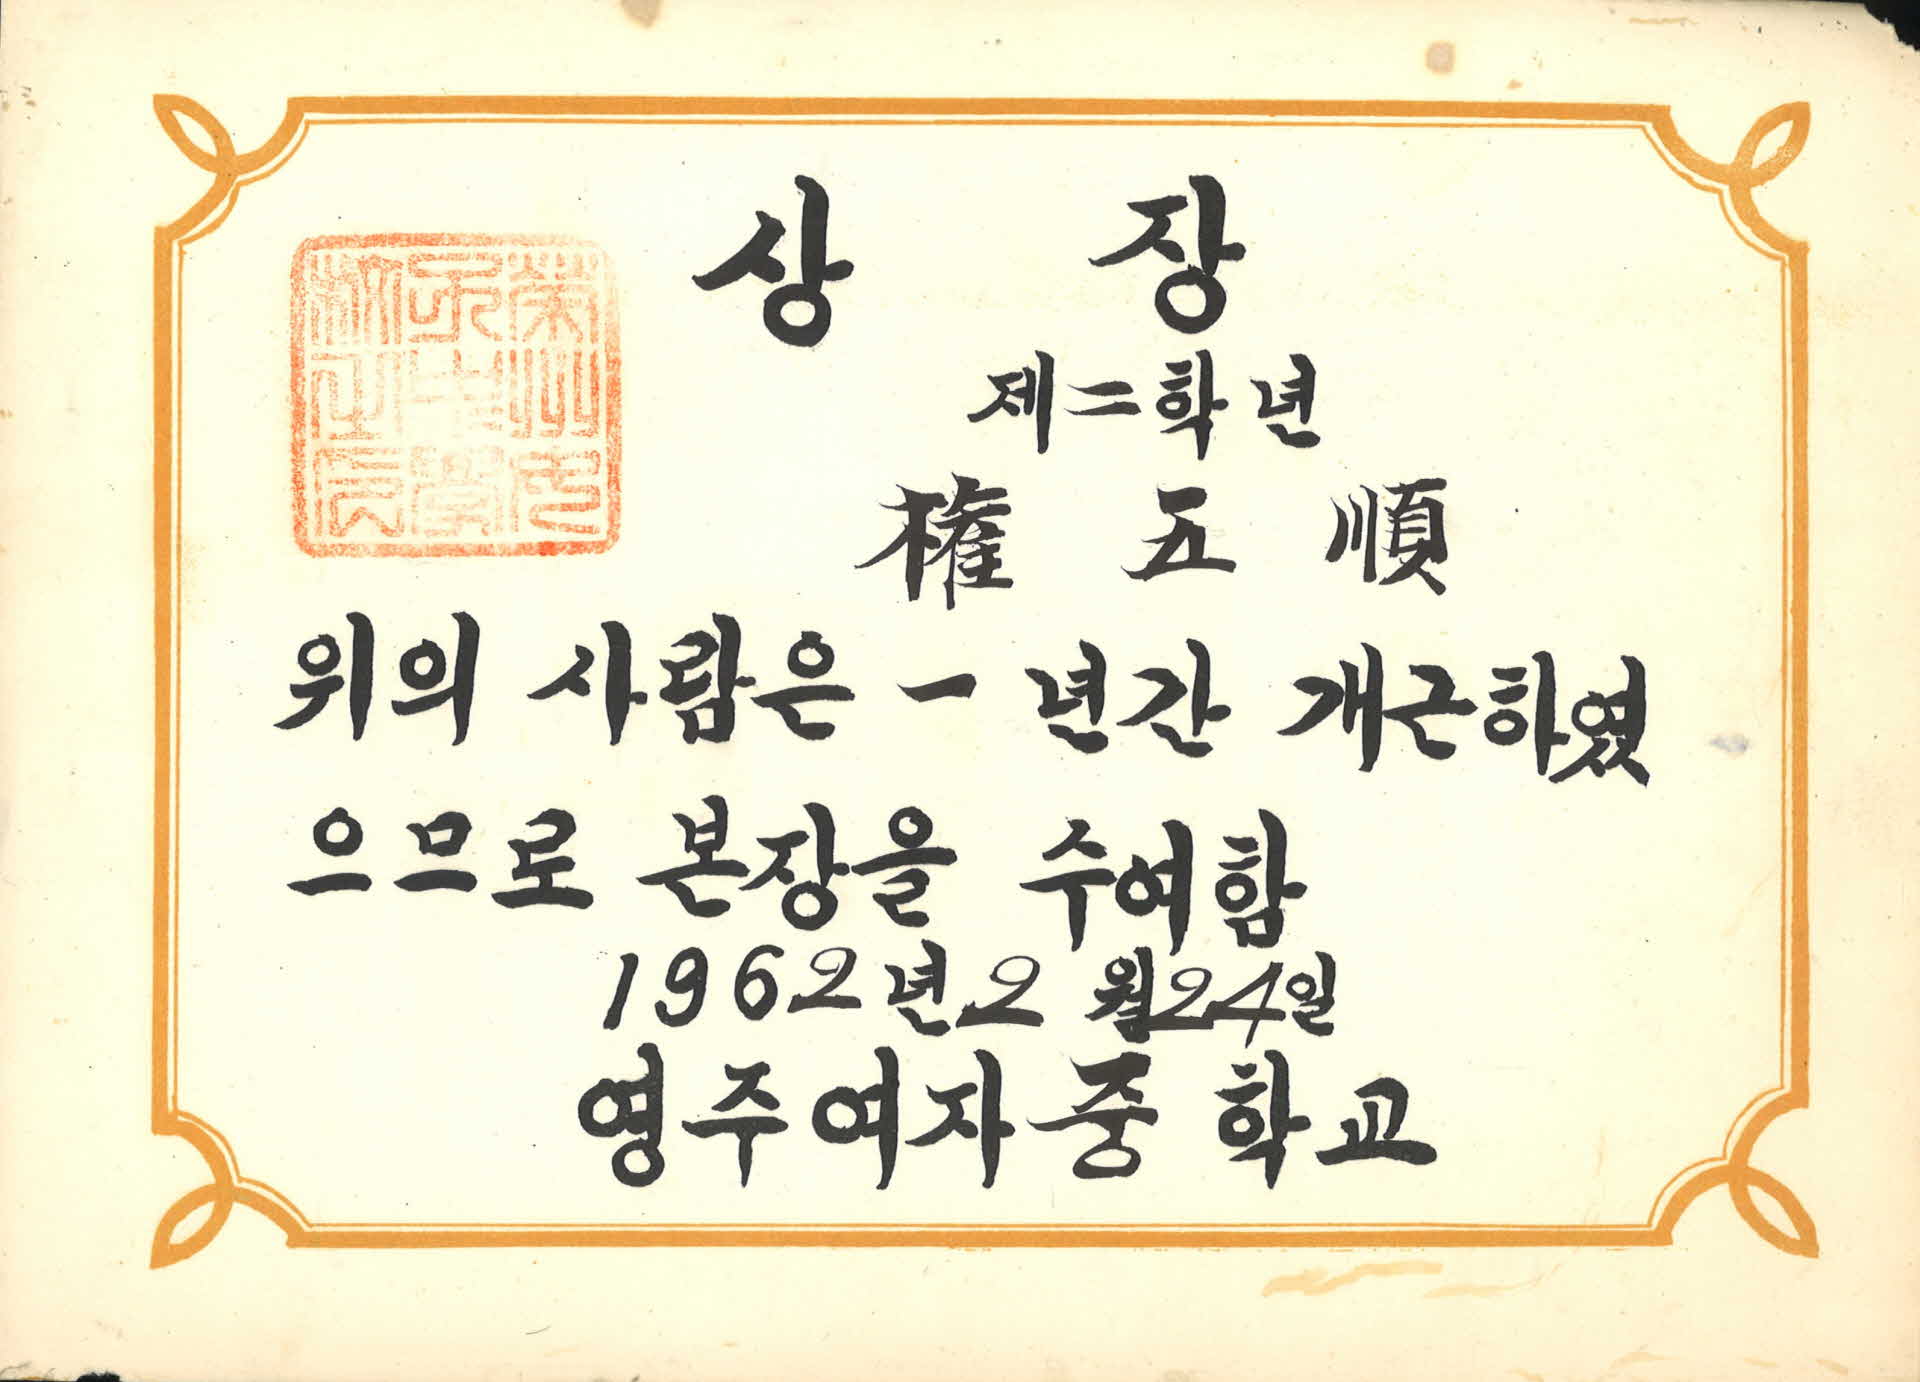 상 장
제二학년
権 五 順
위의 사람은 一 년간 개근하였
으므로 본장을 수여함
1962년 2월 24일
영주여자중학교